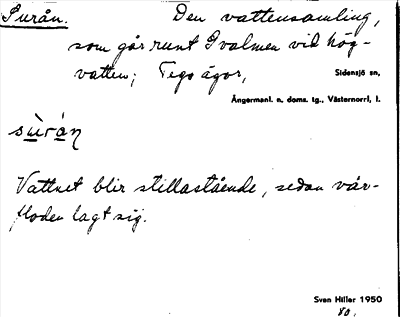 Surån. Den vattensamling,
som går runt Svalmen vid hög-
vatten; Tegs ägor,
Sidensjö sn,
Ångermanl. n. doms. tg., Västernorrl, l.
sùrán
Vattnet blir stillastående, sedan vår-
floden lagt sig.
Sven Hiller 1950
80.